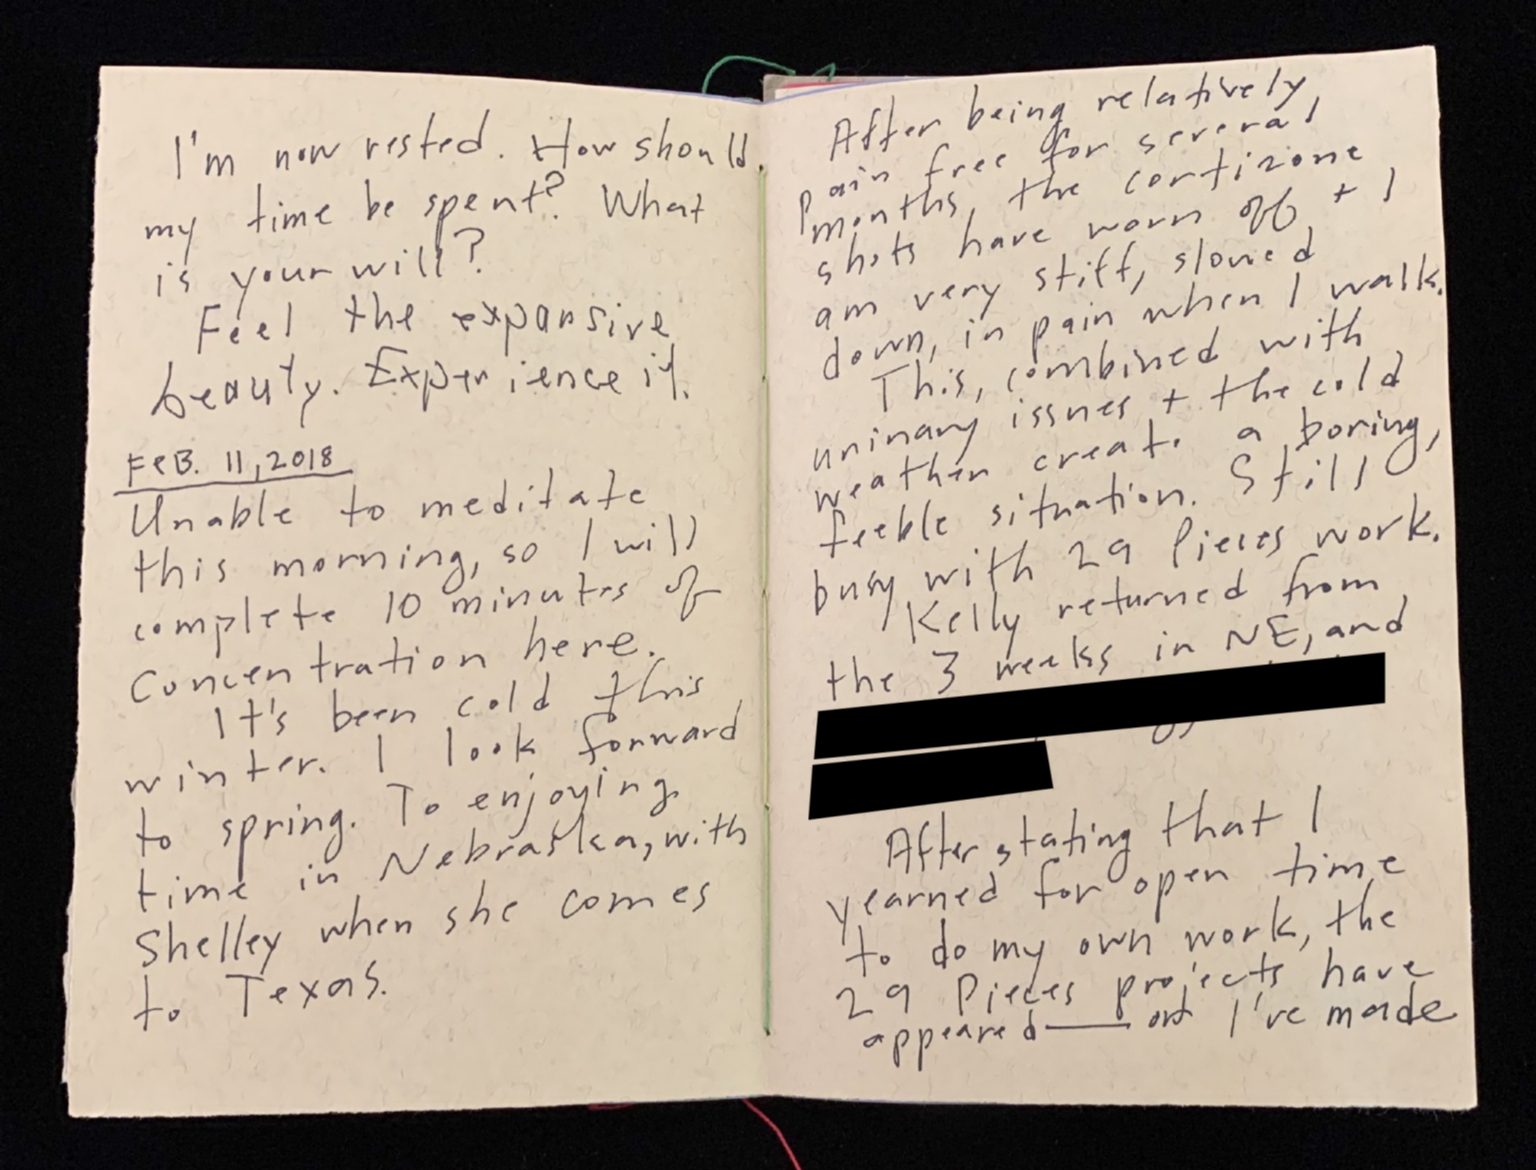 I'm now rested. How should
my time be spent? What
is your will?
Feel the expansive
beauty. Experience it.
FEB. 11, 2018
Unable to meditate
this morning, so I will
complete 10 minutes of
concentration here.
It's been cold this
winter. I look forward
to spring. To enjoying
time in Nebraska, with
Shelley when she comes
to Texas.
After being relatively
pain free for several
months, the cortizone
shots have worn off + I
am very stiff, slowed
down, in pain when I walk.
This, combined with
urinary issues + the cold
weather create a boring,
feeble situation. Still
busy with 29 Pieces work.
Kelly returned from
the 3 weeks in NE, and
After stating that I
yearned for open time
to do my own work, the
29 Pieces projects have
appeared — I've made